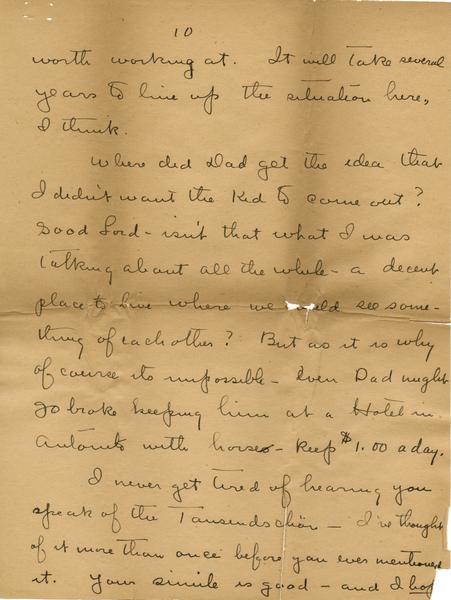 10
worth working at. It will take several
years to line up the situation here,
I think.
Where did Dad get the idea that
I didn't want the Kid to come out?
Good Lord - isn't that what I was
talking about all the while - a decent
place to live where we could see some-
thing of each other? But as it is why
of course its impossible - Even Dad might
go broke keeping him at a Hotel in
Antonito with horses - keep $1.00 a day.
I never get tired of hearing you
speak of the Tausendschön - I've thought
of it more than once before you ever mentioned
it. Your simile is good - and I